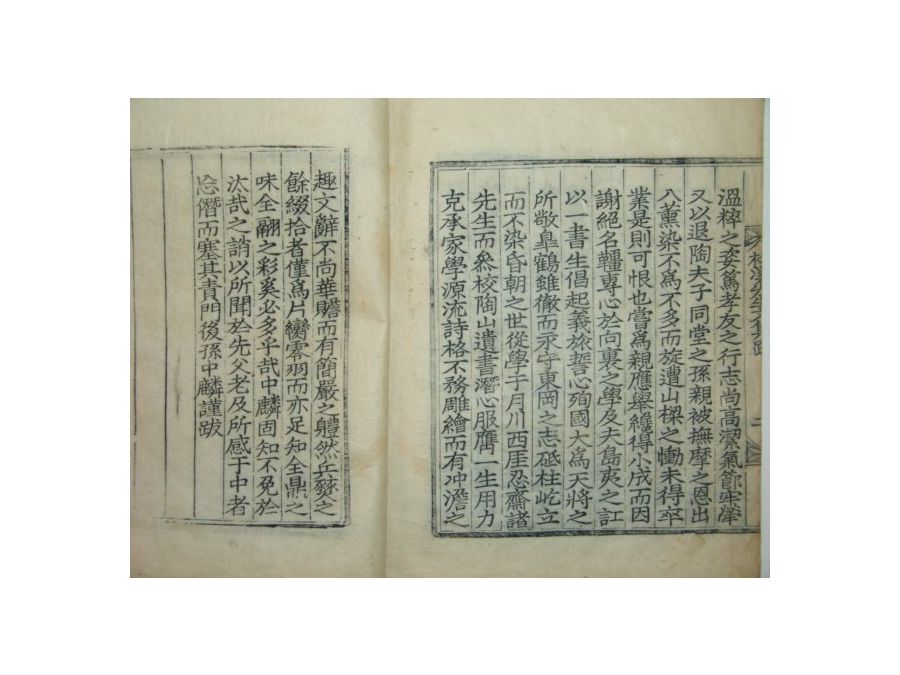 溫粹之姿篤孝友之行志尚高潔氣節牢犖
又以退陶夫子同堂之孫親被撫摩之恩出
入薰染不爲不多而旋遭山樑之慟未得卒
業是則可恨也嘗爲親應舉纔得小成而因
謝絕名韁專心於向裏之學及夫島夷之訌
以一書生倡起義旅誓心殉國大爲天將之
所敬臯鶴雖徹而永守東岡之志砥柱屹立
而不染昏朝之世從學于月川西厓忍齋諸
先生而叅校陶山遺書潛心服膺一生用力
克承家學源流詩格不務雕繪而有冲澹之
趣文辭不尚華贍而有簡嚴之軆然兵燹之
餘綴拾者僅爲片臠零羽而亦足知全鼎之
味全翮之彩奚必多乎哉中麟固知不免於
汰哉之誚以所聞於先父老及所感于中者
忘僭而塞其責門後孫中麟謹跋